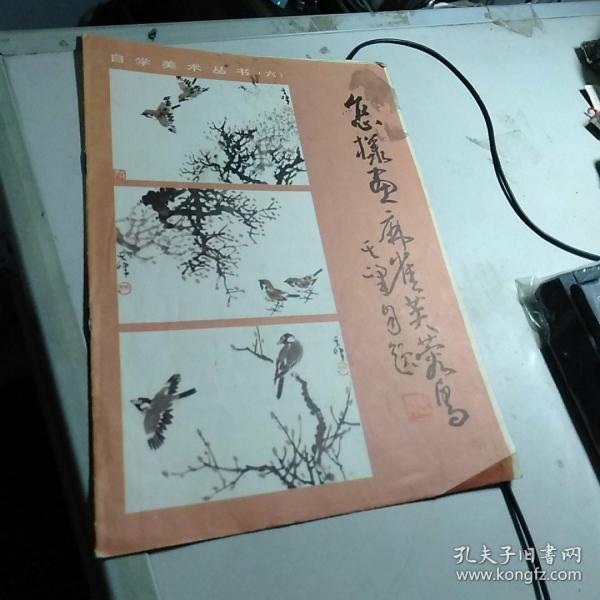 自学美术丛书(六)
怎樣画麻雀芙蓉鸟
孔夫子旧书网
www.kongfz.com